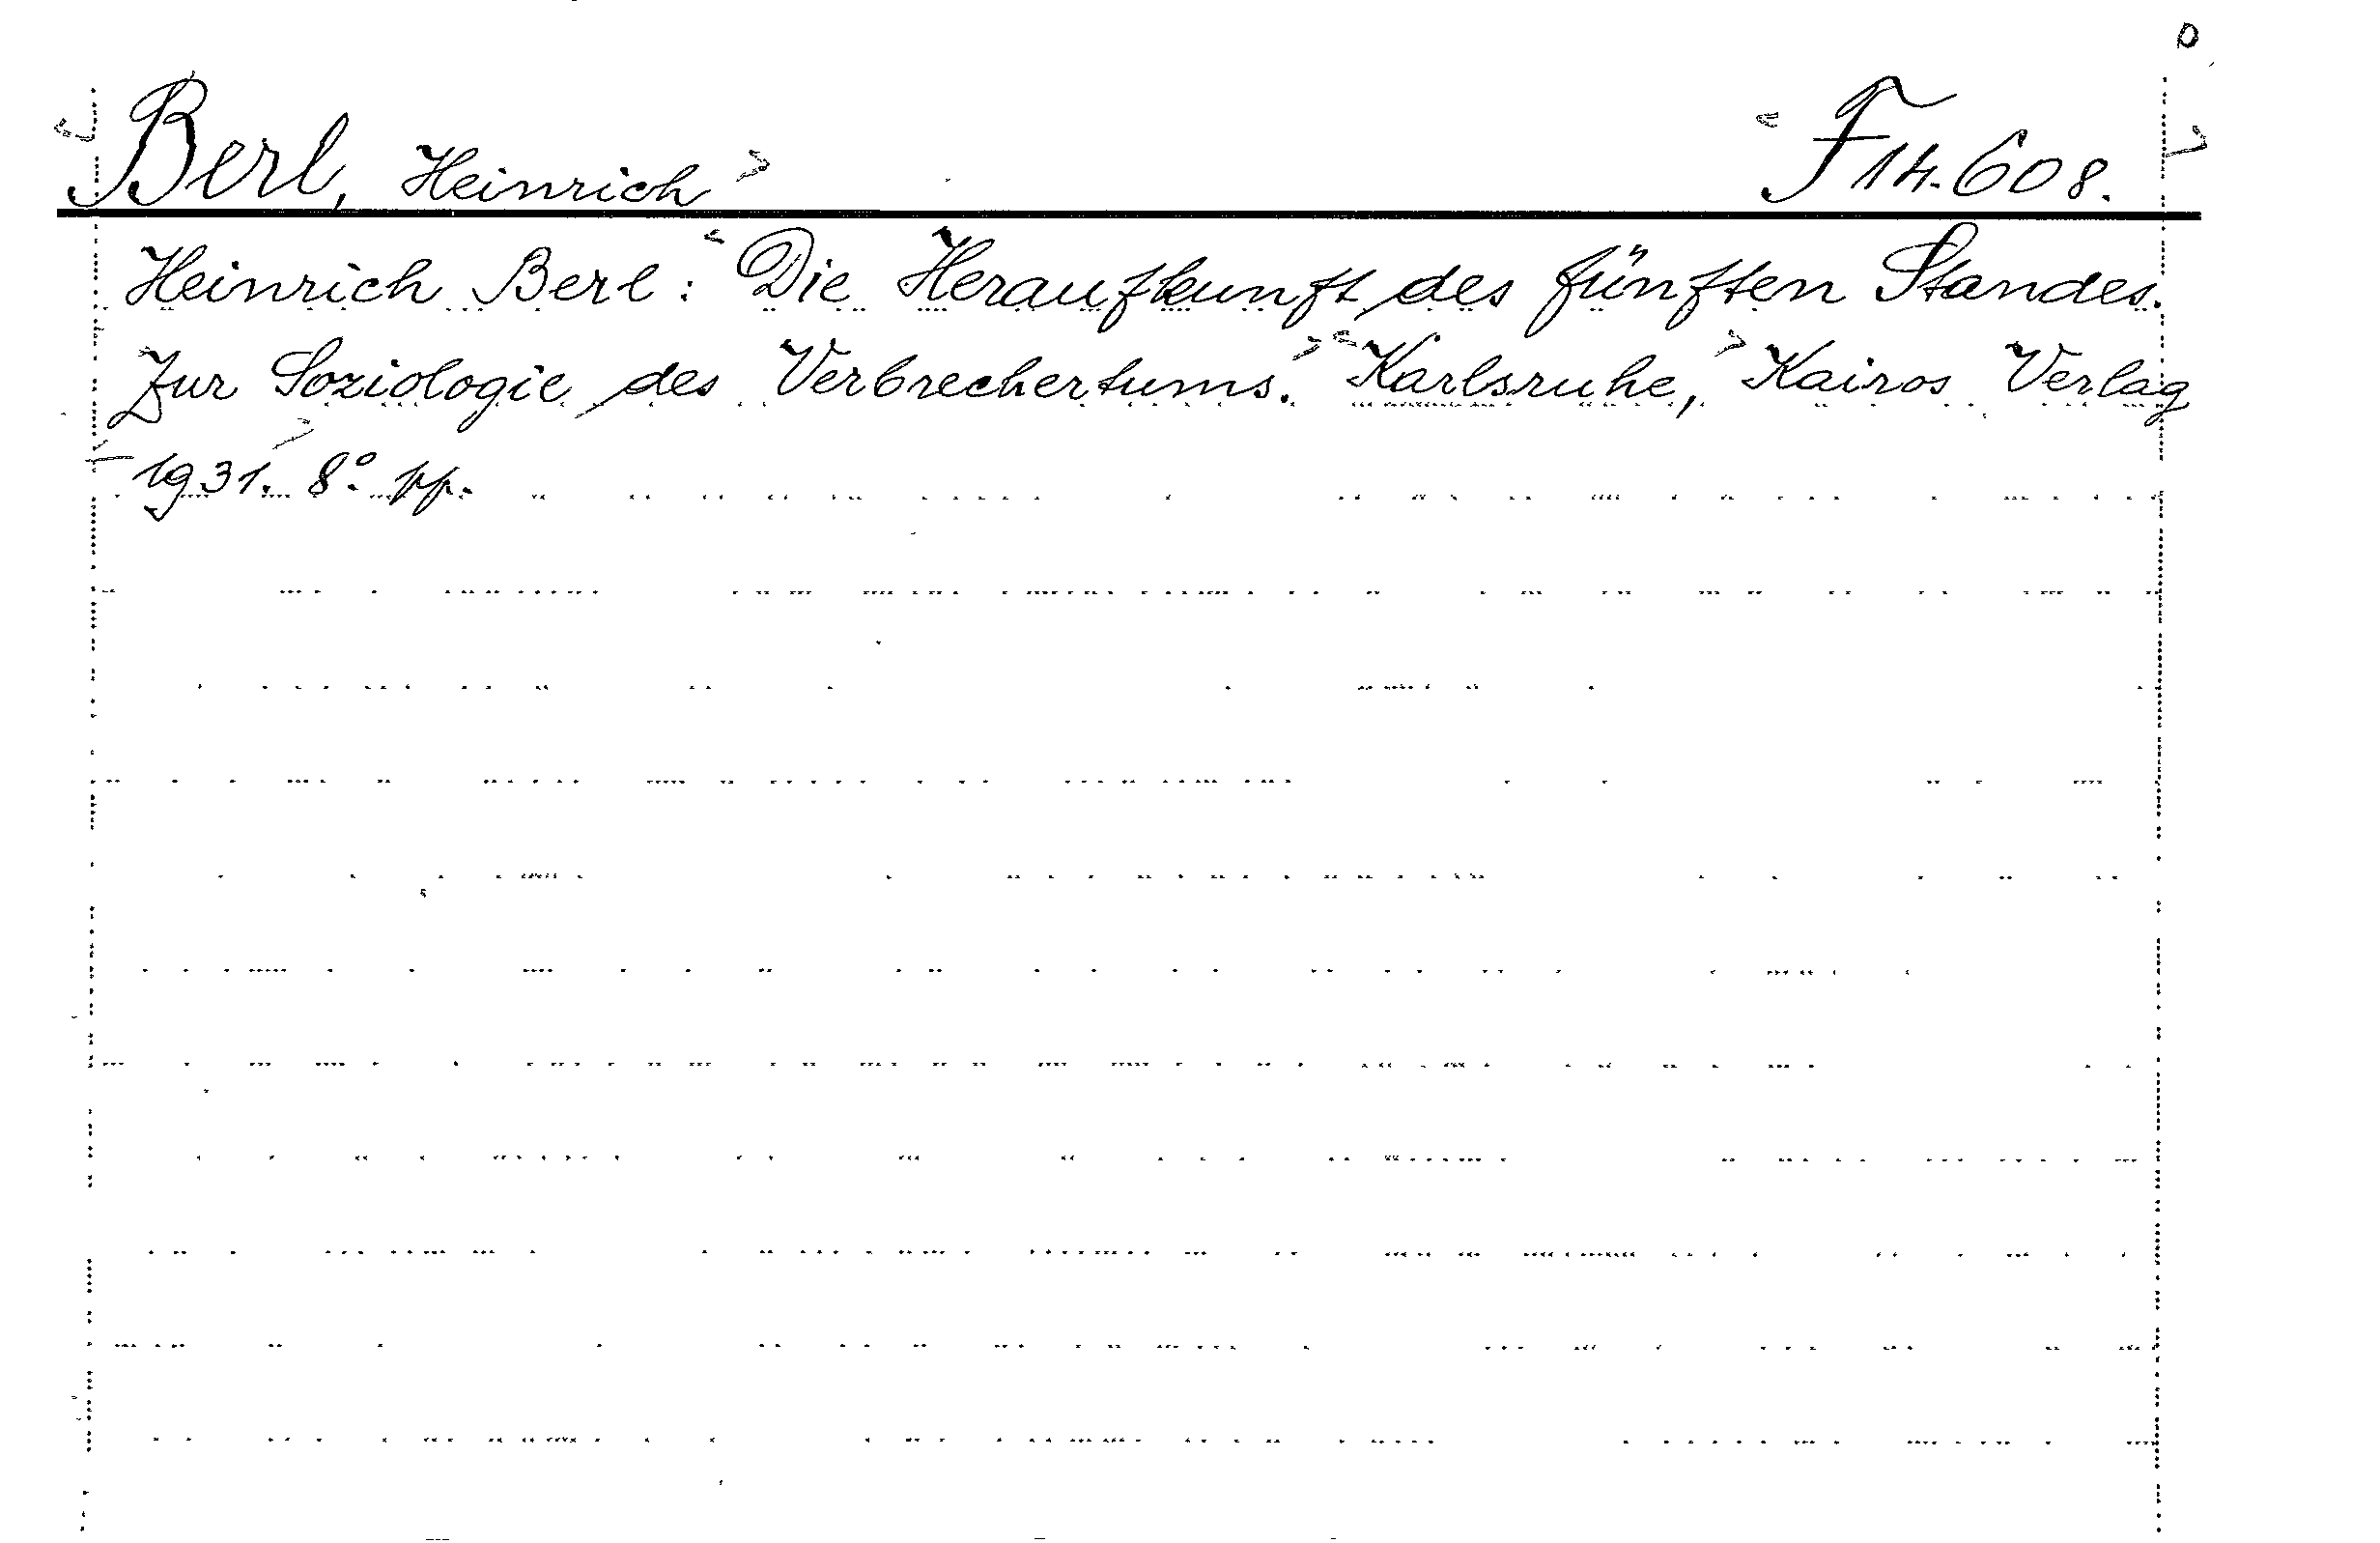 Berl, Heinrich F 14.608.
Heinrich Berl: Die Heraufkunft des fünften Standes.
Zur Soziologie des Verbrechertums. Karlsruhe, Kairos Verlag
1931. 8° pp.